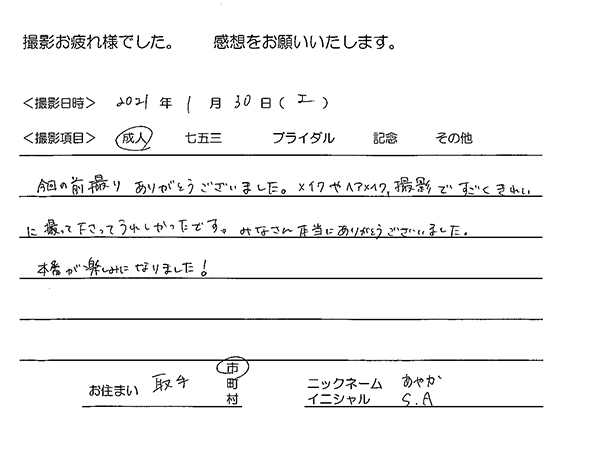 撮影お疲れ様でした。 感想をお願いいたします。
＜撮影日時＞ 2021 年 1 月 30 日 ( 土 )
＜撮影項目＞ 成人 七五三 ブライダル 記念 その他
今回の前撮り ありがとうございました。メイクやヘアメイク, 撮影で すごくきれい
に 撮って下さってうれしかったです。 みなさん 本当にありがとうございました。
本番が楽しみになりました！
お住まい 取手 市 町 村
ニックネーム あやか
イニシャル S.A